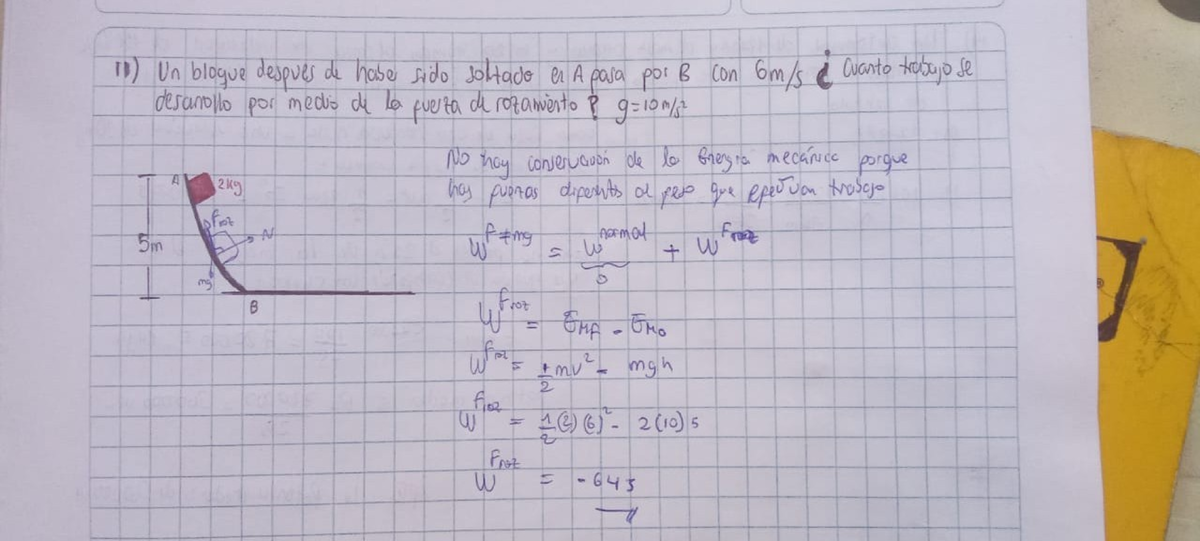 11) Un bloque despues de haber sido soltado en A pasa por B con 6m/s ¿ Cuanto trabajo se
desarrollo por medio de la fuerza de rozamiento ? g=10m/s²
No hay conservación de la Energia mecánica porque
hay fuerzas diferents al peso que efectuan trabajo
A 2Kg
Froz
N
5m
mg
B
W^F≠mg = W^normal + W^Froz
0
W^Froz = EMF - EMo
W^Froz = 1/2 mv² - mgh
W^Froz = 1/2 (2) (6)² - 2(10) 5
W^Froz = - 64 J